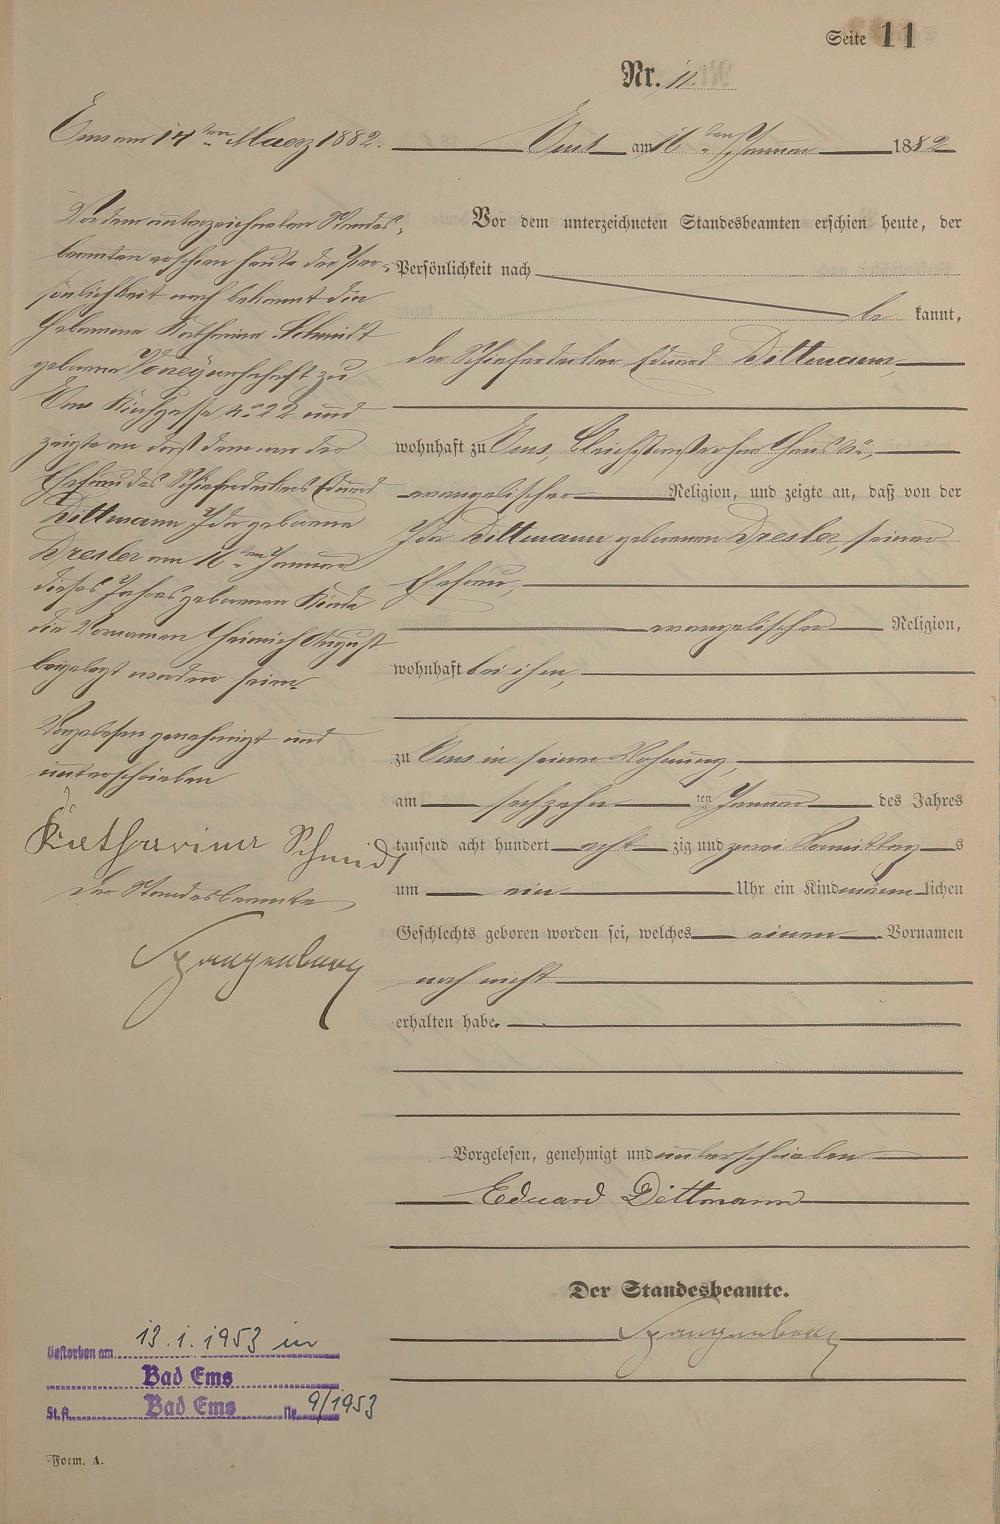 Seite 11
Nr. 11.
Ems am 14ten Maerz 1882.
Vor dem unterzeichneten Standes-
beamten erschien heute der Per-
sönlichkeit nach bekannt die
Hebamme Katharina Schmidt
geborene wohnhaft zu
Ems Kirchgasse No 22 und
zeigte an daß dem von der
Ehefrau des Schieferdeckers Eduard
Dittmann Ida geborene
Dresler am 16ten Januar
dieses Jahres geborenen Kinde
die Vornamen Heinrich August
beigelegt worden seien.
Vorgelesen genehmigt und
unterschrieben
Katharina Schmidt
Der Standesbeamte
Spangenberg
Ems am 16ten Januar 1882
Vor dem unterzeichneten Standesbeamten erschien heute, der
Persönlichkeit nach
be kannt,
der Schieferdecker Eduard Dittmann,
wohnhaft zu Ems, Haus No,
evangelischer Religion, und zeigte an, daß von der
Ida Dittmann geborenen Dresler, seiner
Ehefrau,
evangelischer Religion,
wohnhaft bei ihm,
zu Ems in seiner Wohnung,
am sechzehn ten Januar des Jahres
tausend acht hundert acht zig und zwei Vormittag s
um ein Uhr ein Kind männ lichen
Geschlechts geboren worden sei, welches einen Vornamen
noch nicht
erhalten habe.
Vorgelesen, genehmigt und unterschrieben
Eduard Dittmann
Der Standesbeamte.
Spangenberg
Gestorben am 13.1.1953 in
Bad Ems
St.A. Bad Ems Nr. 9/1953
Form. A.